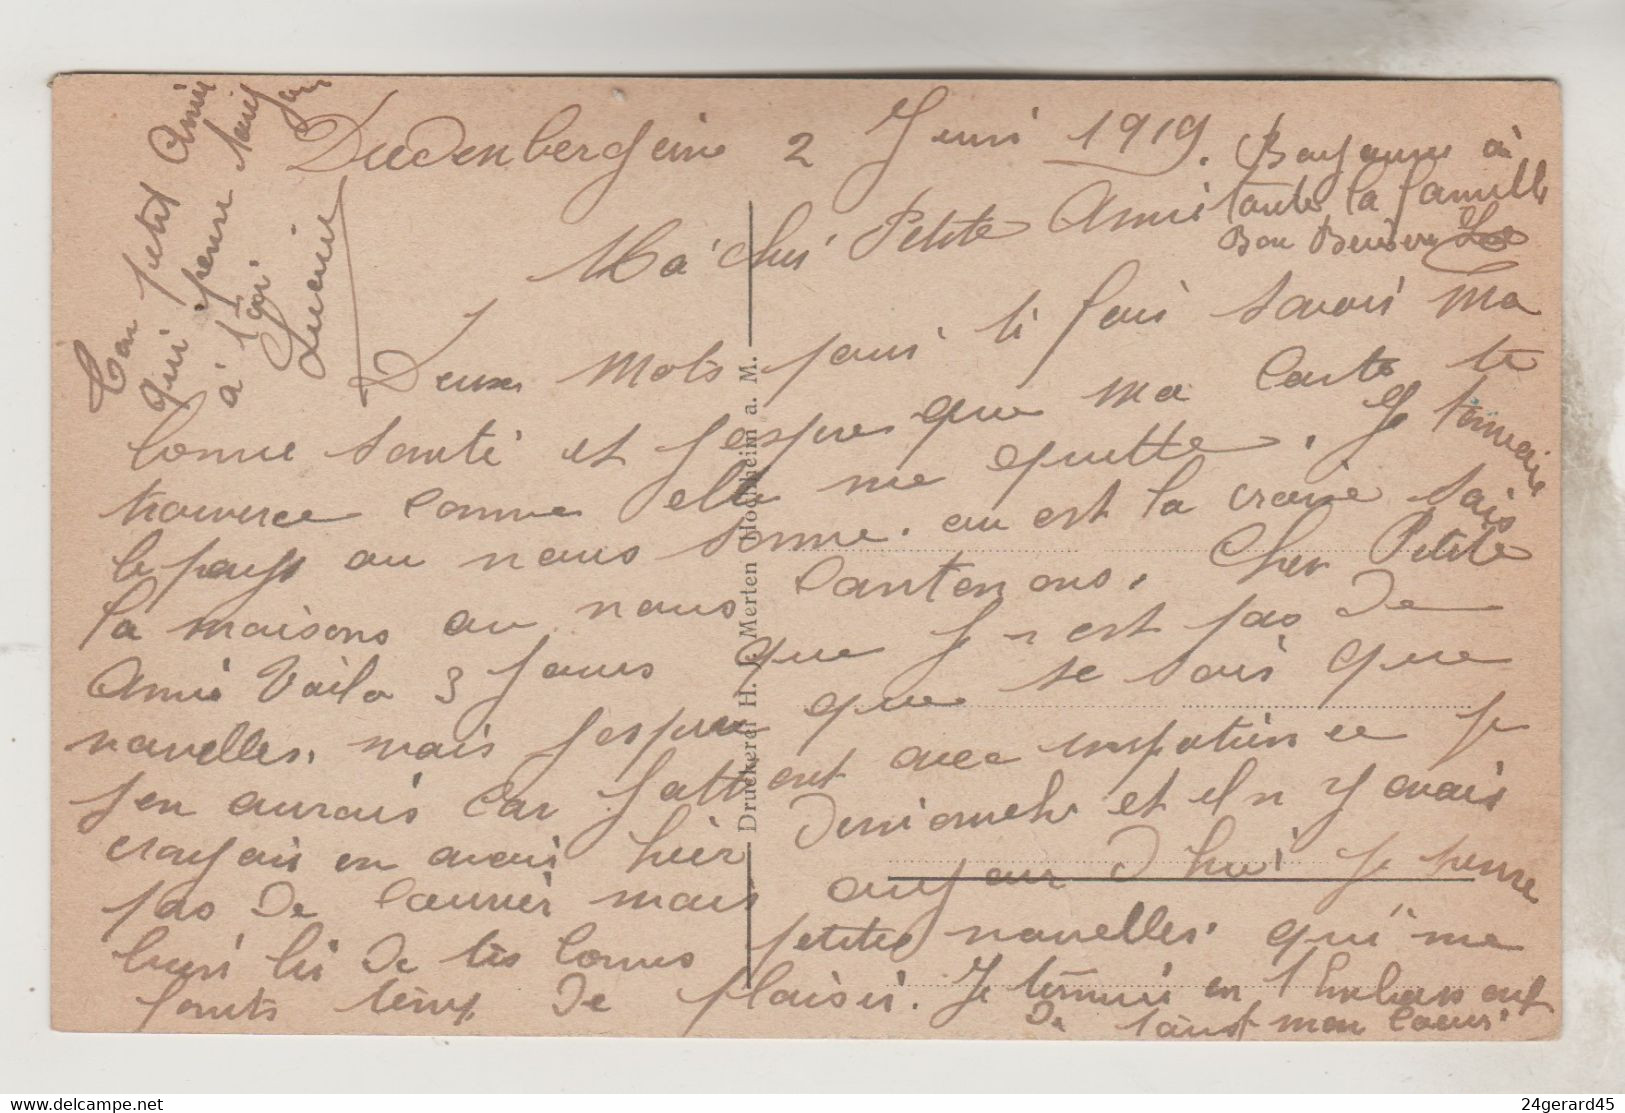 Dudenbergeim 2 Juin 1919.
Bonjour à
toutes la famille
Bon Baisers
Ma Chér Petite Ami
Deux mots pour ti fair savoir Ma
bonne santé et j'espere que ma carte te
trouvera comme elle me quitte. Je
le pays ou nous somme. ou est la croix sais
la maisons ou nous cantonons. Cher Petite
Ami Voila 3 jours que j n est pas de
nouvelles. mais j'espere que se sois que
j'en aurais car j'attent avec impatience je
croyais en avoir hier dimanche et il n y avais
pas de courrier mais aujour d hui je pense
bien lir de tes bonnes petites nouvelles qui me
fonts temp de plaisir. Je termine en t'embrassant
de tout mon coeur.
Ton petit Ami
qui pense toujours
à toi
Lucien
Druckerei H. J. Merten Hochheim a. M.
24gerard45
delcampe.net